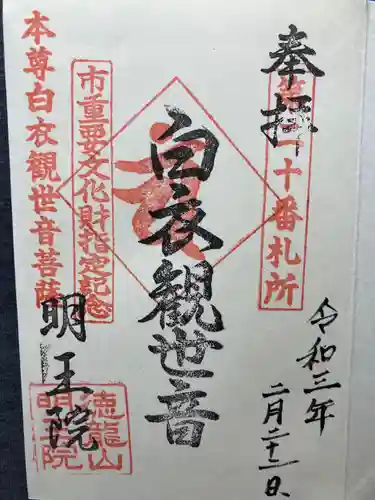 奉拝
十番札所
令和三年
二月二十一日
白衣観世音
市重要文化財指定記念
本尊白衣観世音菩薩
明王院
徳龍山
明王院